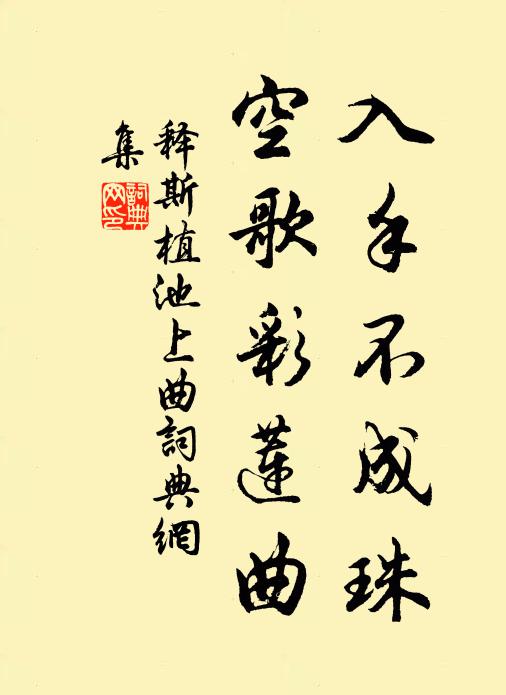 入手不成珠
空歌彩蓮曲
释斯植池上曲詞典網
集
詞典网印